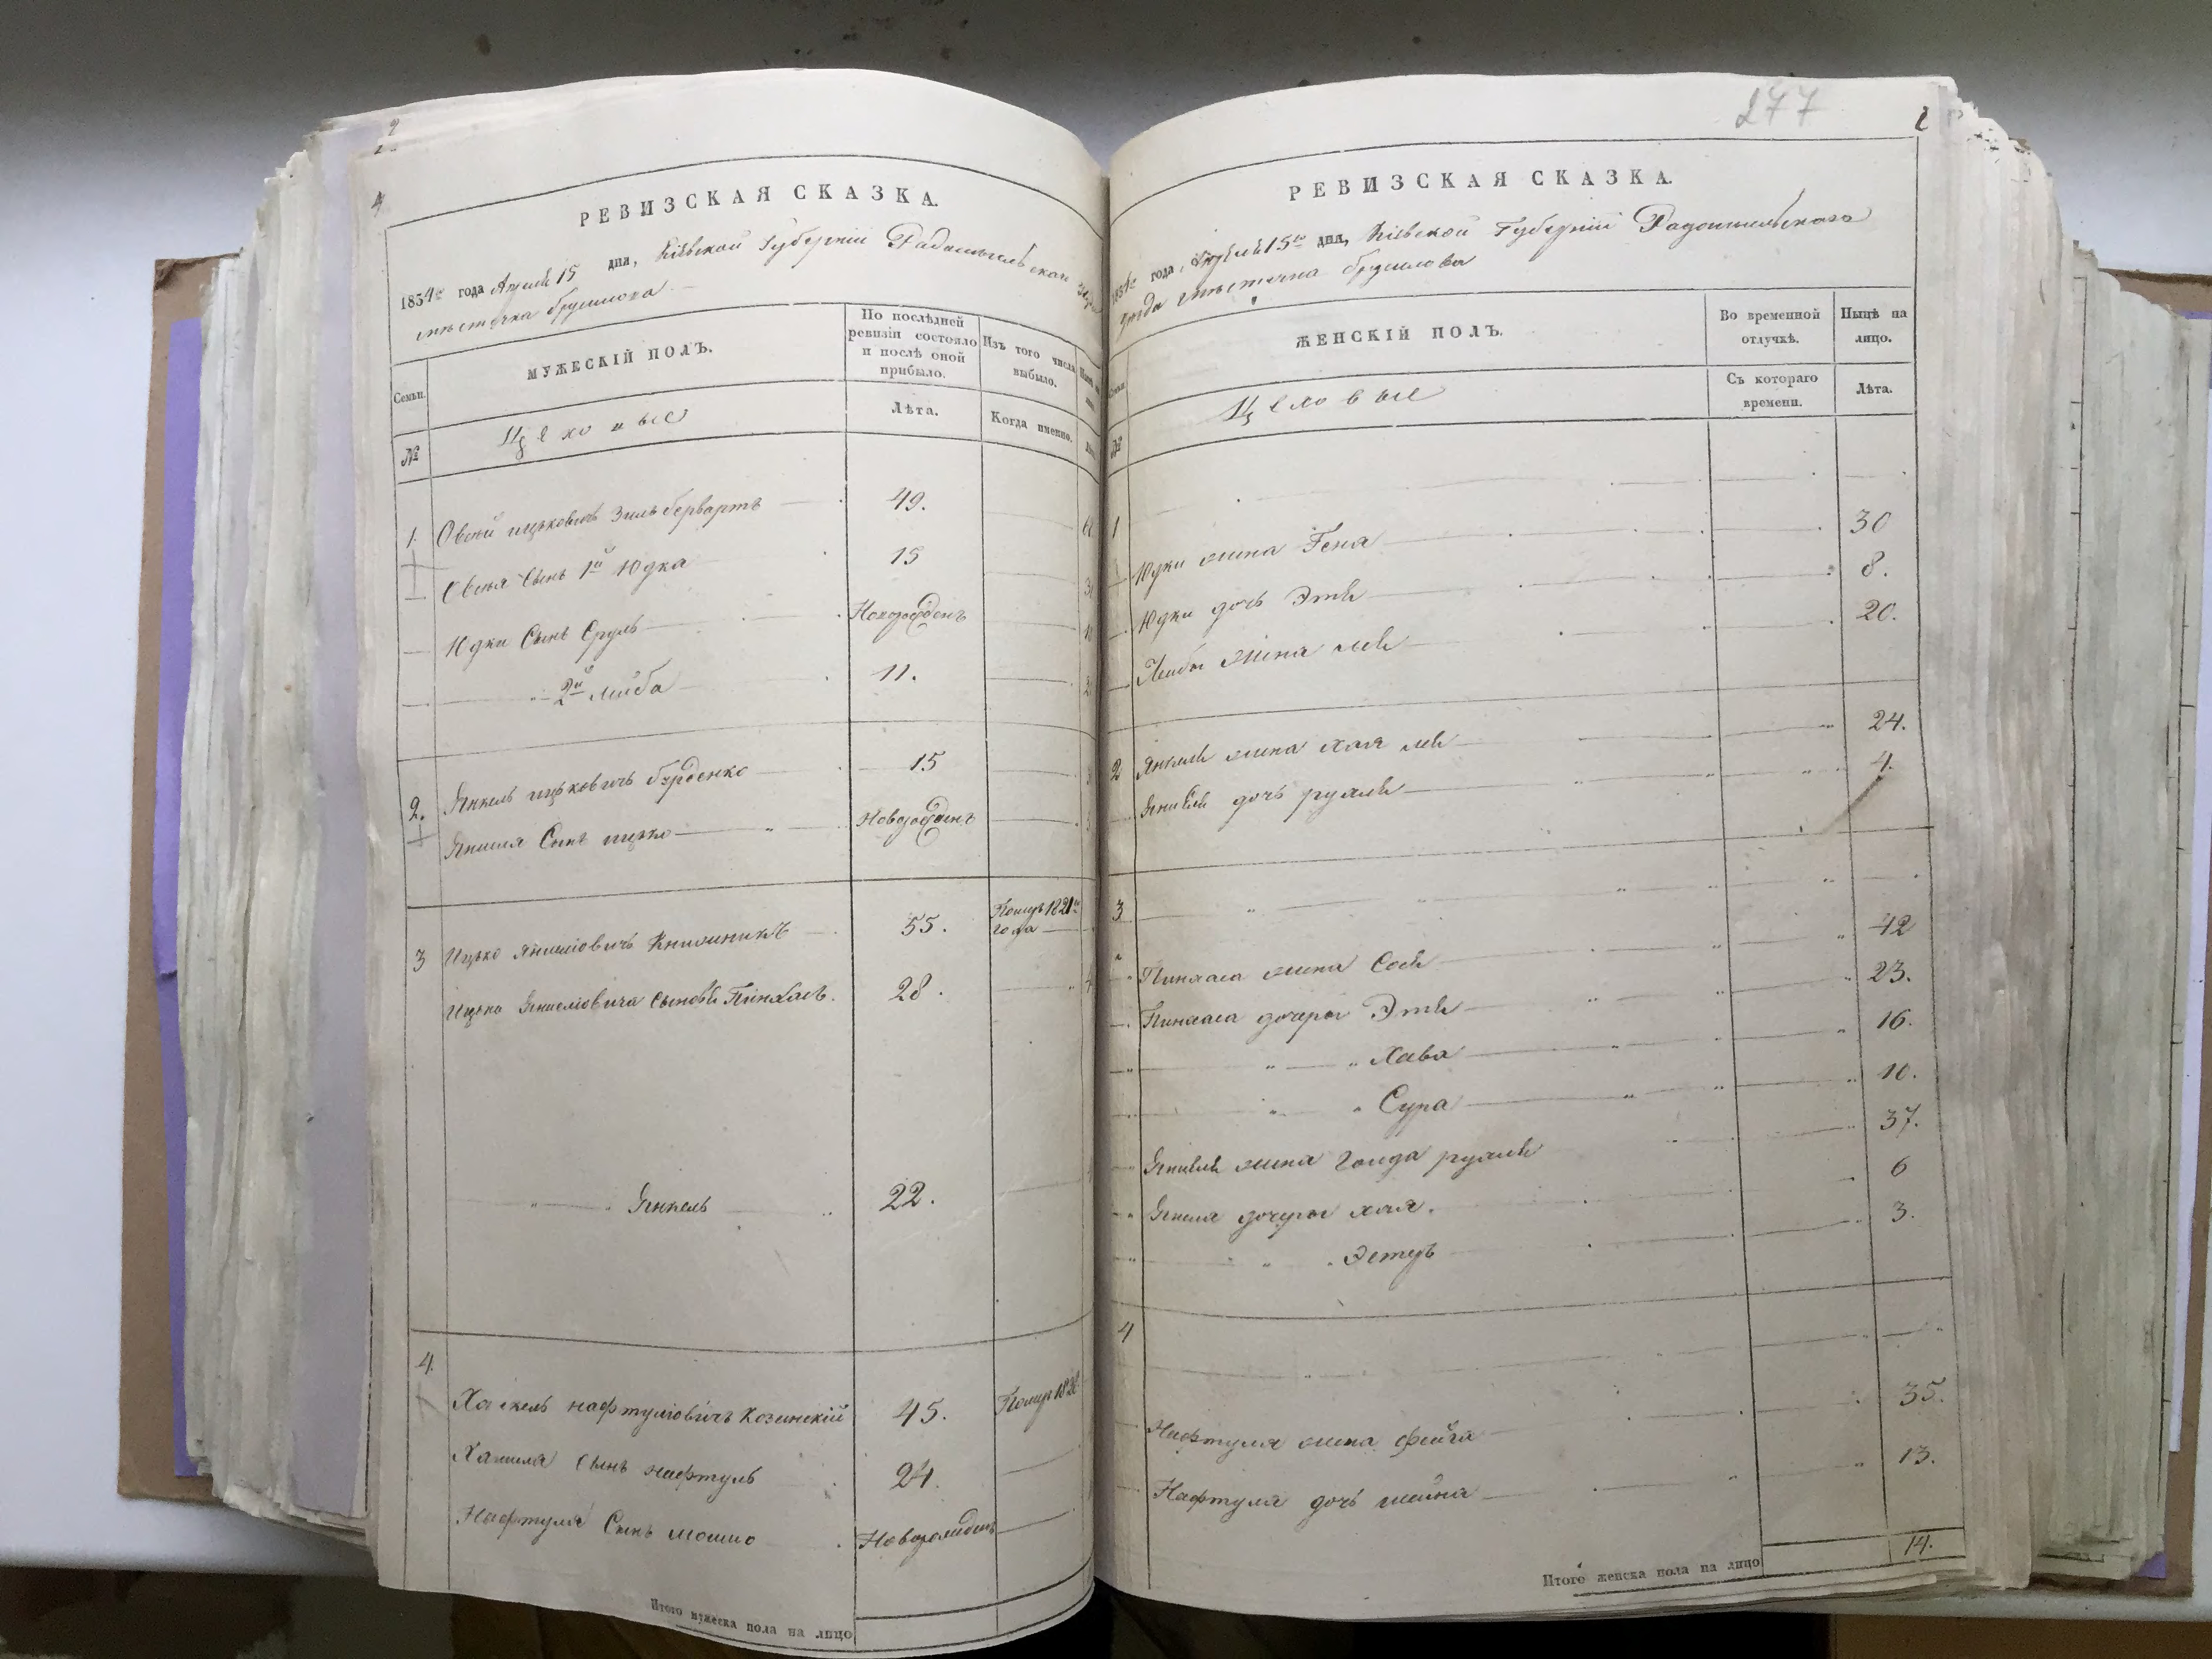 2
4
РЕВИЗСКАЯ СКАЗКА.
1834го года Апреля 15 дня, Кіевской Губерніи Радомысльскаго
местечка Брусилова
Семьи.
МУЖЕСКІЙ ПОЛЪ.
По послѣдней ревизіи состояло и послѣ оной прибыло.
Изъ того числа выбыло.
№
Цеховые
Лѣта.
Когда именно.
1. Овсѣй ицьковичъ Зильбервартъ 49.
Овсѣя Сынъ 1й Юдка 15
Юдки Сынъ Сруль Новорожденъ
2й Лейба 11.
2. Янкель ицьковичъ Бурденко 15
Янкеля Сынъ ицько Новорожденъ
3 Ицько Янкеліовичъ Книжникъ 55. Померъ 1821го года
Ицька Янкеліовича Сыновья Пинхасъ. 28.
Янкель 22.
4. Хаскель нафтуліовичъ Козинскій 45. Померъ
Хаскеля Сынъ нафтуль 24.
Нафтуля Сынъ мошко Новорожденъ
Итого мужеска пола на лицо
277
РЕВИЗСКАЯ СКАЗКА.
1834го года, Апреля 15го дня, Кіевской Губерніи Радомысльскаго
уезда местечка Брусилова
ЖЕНСКІЙ ПОЛЪ.
Во временной отлучкѣ.
Нынѣ на лицо.
№
Цеховые
Съ котораго времени.
Лѣта.
1
Юдки жена Геня 30
Юдки дочь Этя 8.
Лейбы жена лея 20.
2 Янкеля жена хая лея 24.
Янкеля дочь рухля 4.
3
Пинхаса жена Сося 42
Пинхаса дочери Этя 23.
Хава 16.
Сура 10.
Янкеля жена Голда рухля 37.
Янкеля дочери хая. 6
Эстеръ 3.
4
Нафтуля жена фейга 35.
Нафтуля дочь шейна 13.
Итого женска пола на лицо 14.